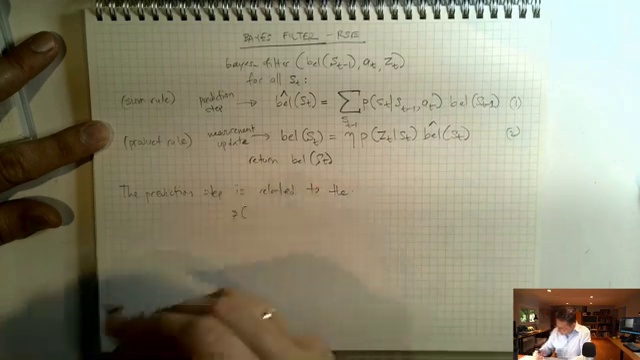 BAYES FILTER - RSE
bayes filter (bel(S_{t-1}), a_t, z_t)
for all S_t:
(sum rule) prediction step → \hat{bel}(S_t) = \sum_{S_{t-1}} p(S_t | S_{t-1}, a_t) bel(S_{t-1}) (1)
(product rule) measurement update → bel(S_t) = η p(z_t | S_t) \hat{bel}(S_t) (2)
return bel(S_t)
The prediction step is related to the